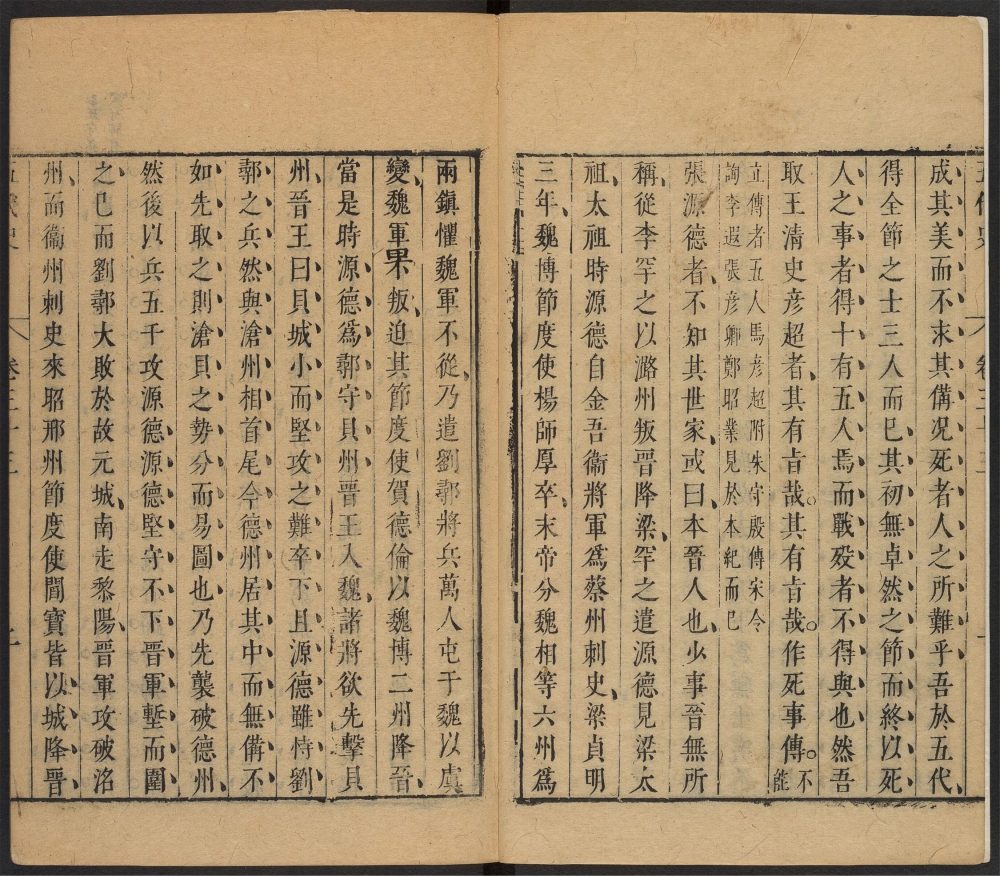 成其美而不求其備况死者人之所難乎吾於五代
得全節之士三人而已其初無卓然之節而終以死
人之事者得十有五人焉而戰歿者不得與也然吾
取王清史彦超者其有旨哉其有旨哉作死事傳不能
立傳者五人馬彦超附朱守殷傳宋令
詢李遐張彦卿鄭昭業見於本紀而已
張源德者不知其世家或曰本晉人也少事晉無所
稱從李罕之以潞州叛晉降梁罕之遣源德見梁太
祖太祖時源德自金吾衞將軍爲蔡州刺史梁貞明
三年魏博節度使楊師厚卒末帝分魏相等六州爲
兩鎮懼魏軍不從乃遣劉鄩將兵萬人屯于魏以虞
變魏軍果叛迫其節度使賀德倫以魏博二州降晉
當是時源德爲鄩守貝州晉王入魏諸將欲先擊貝
州晉王曰貝城小而堅攻之難卒下且源德雖恃劉
鄩之兵然與滄州相首尾今德州居其中而無備不
如先取之則滄貝之勢分而易圖也乃先襲破德州
然後以兵五千攻源德源德堅守不下晉軍塹而圍
之已而劉鄩大敗於故元城南走黎陽晉軍攻破洺
州而衞州刺史來昭邢州節度使閻寶皆以城降晉